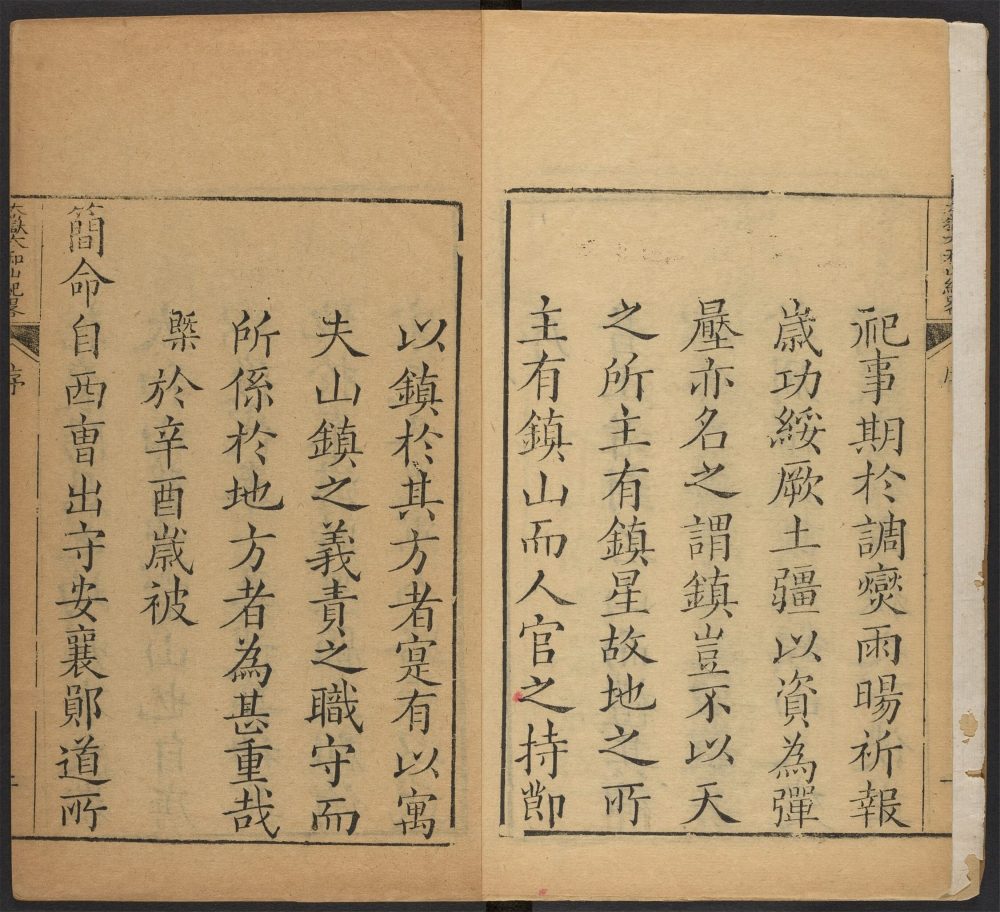 祀事期於調燮雨暘祈報
歲功綏厥土疆以資為彈
壓亦名之謂鎮豈不以天
之所主有鎮星故地之所
主有鎮山而人官之持節
以鎮於其方者寔有以寓
夫山鎮之義責之職守而
所係於地方者為甚重哉
槩於辛酉歲被
簡命自西曹出守安襄鄖道所
太嶽太和山紀畧
序